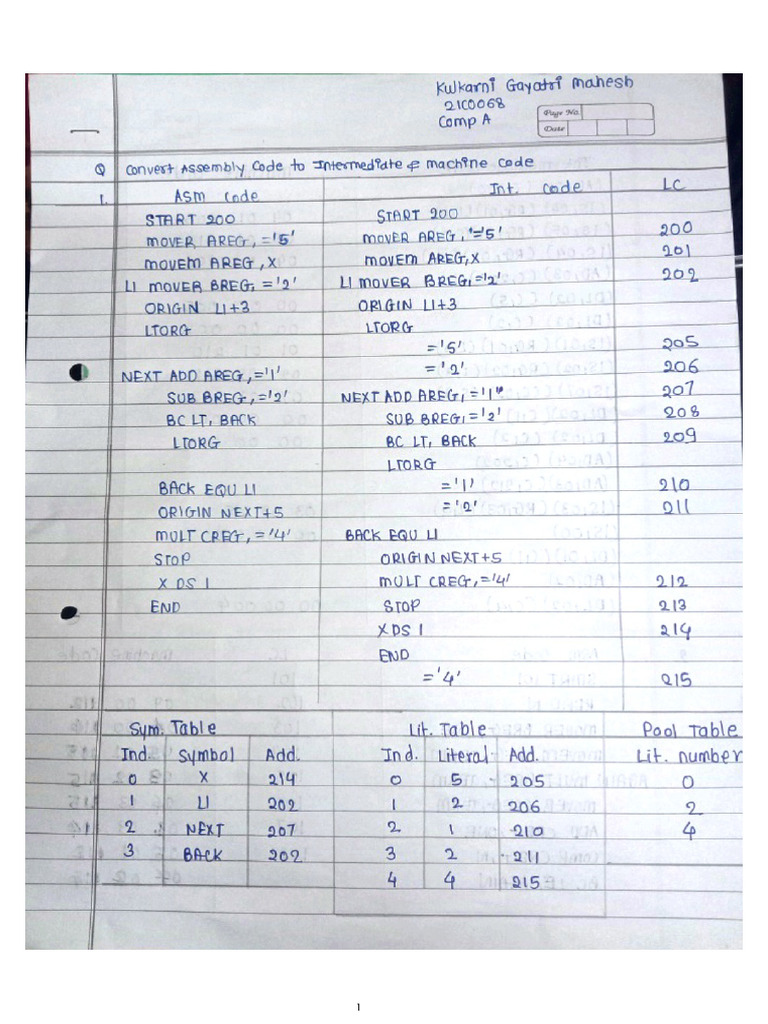 Kulkarni Gayatri Mahesh
21C0068
Comp A
Page No.
Date
Q Convert Assembly Code to Intermediate & machine code
1. ASM Code Int. code LC
START 200 START 200
MOVER AREG, ='5' MOVER AREG, '='5' 200
MOVEM AREG, X MOVEM AREG, X 201
L1 MOVER BREG, ='2' L1 MOVER BREG, ='2' 202
ORIGIN L1+3 ORIGIN L1+3
LTORG LTORG
='5' 205
='2' 206
NEXT ADD AREG, ='1' NEXT ADD AREG, ='1' 207
SUB BREG, ='2' SUB BREG, ='2' 208
BC LT, BACK BC LT, BACK 209
LTORG LTORG
BACK EQU L1 ='1' 210
ORIGIN NEXT+5 ='2' 211
MULT CREG, ='4' BACK EQU L1
STOP ORIGIN NEXT+5
X DS 1 MULT CREG, ='4' 212
END STOP 213
X DS 1 214
END
='4' 215
Sym. Table Lit. Table Pool Table
Ind. Symbol Add. Ind. Literal Add. Lit. number
0 X 214 0 5 205 0
1 L1 202 1 2 206 2
2 NEXT 207 2 1 210 4
3 BACK 202 3 2 211
4 4 215
1